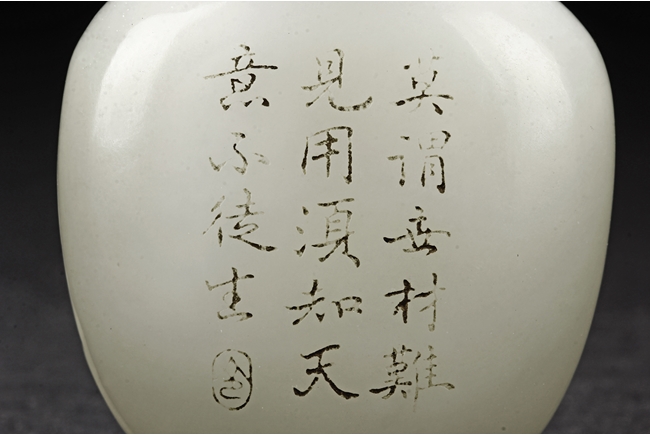 莫謂材難
見用須知天
意不徒生